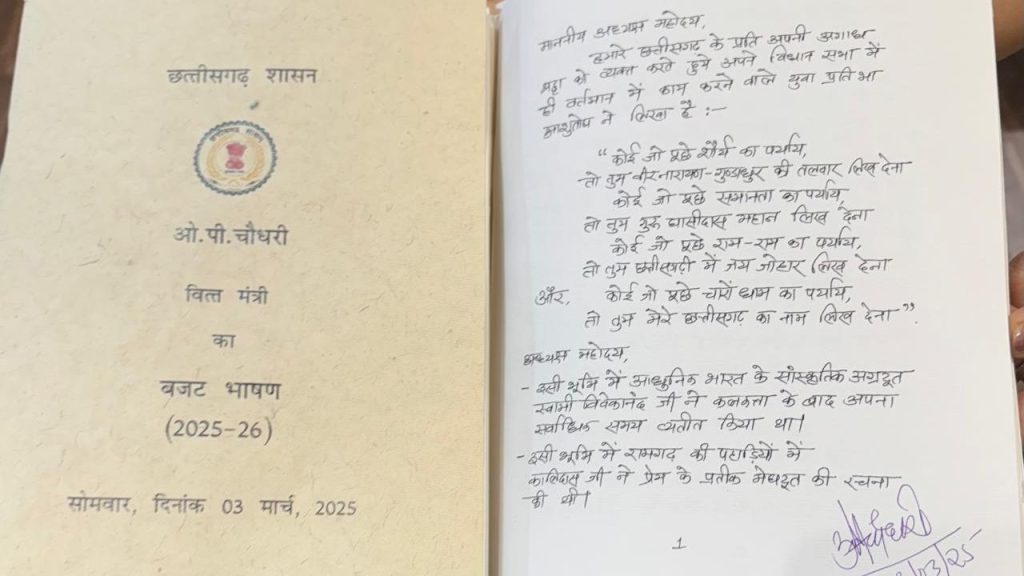 छत्तीसगढ़ शासन
ओ.पी.चौधरी
वित्त मंत्री
का
बजट भाषण
(2025-26)
सोमवार, दिनांक 03 मार्च, 2025
माननीय अध्यक्ष महोदय,
हमारे छत्तीसगढ़ के प्रति अपनी अगाध
श्रद्धा को व्यक्त करते हुये अपने विधान सभा में
ही वर्तमान में काम करने वाले युवा प्रतिभा
आशुतोष ने लिखा है :-
" कोई जो पूछे शौर्य का पर्याय,
तो तुम वीरनारायण-गुण्डाधुर की तलवार लिख देना
कोई जो पूछे समानता का पर्याय,
तो तुम गुरु घासीदास महान लिख देना
कोई जो पूछे राम-राम का पर्याय,
तो तुम छत्तीसगढ़ी में जय जोहार लिख देना
और, कोई जो पूछे चारों धाम का पर्याय,
तो तुम मेरे छत्तीसगढ़ का नाम लिख देना".
अध्यक्ष महोदय,
- इसी भूमि में आधुनिक भारत के सांस्कृतिक अग्रदूत
स्वामी विवेकानंद जी ने कलकत्ता के बाद अपना
सर्वाधिक समय व्यतीत किया था।
- इसी भूमि में रामगढ़ की पहाड़ियों में
कालिदास जी ने प्रेम के प्रतीक मेघदूत की रचना
की थी।
1